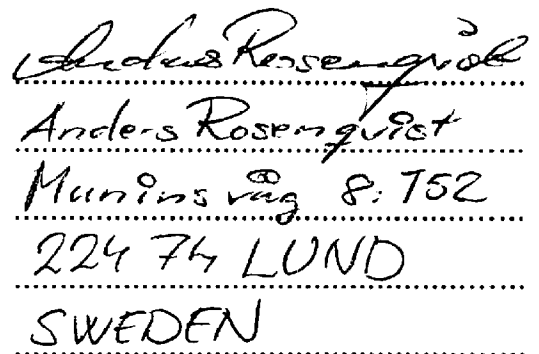 Anders Rosenqvist
Anders Rosenqvist
Munins väg 8:152
224 74 LUND
SWEDEN